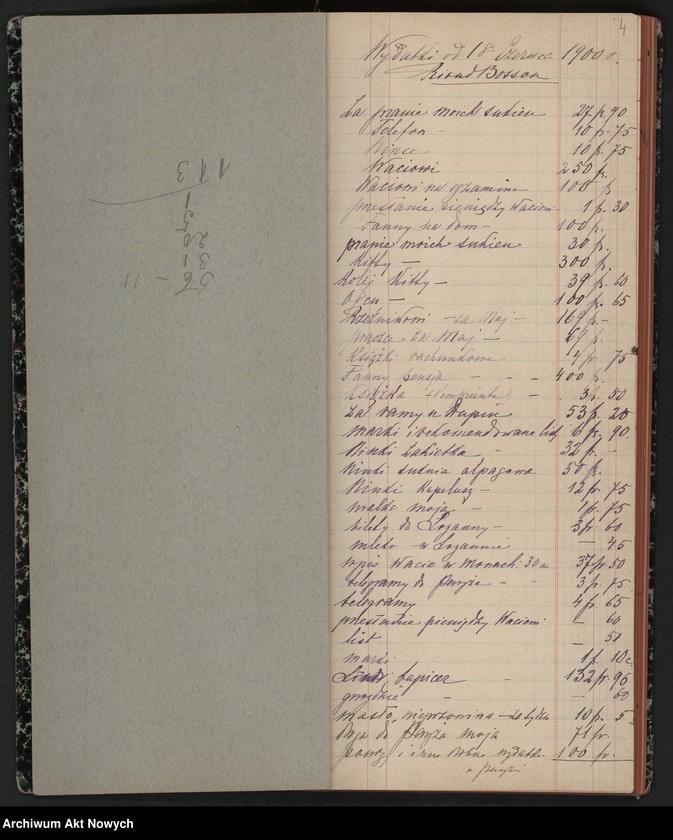 4
Wydatki od 18 Czerwca 1900 r.
Riond Bosson
Za pranie moich sukien 27 f. 90
Telefon — 10 fr. 75
10 f. 75
Waciowi 250 f.
Waciowi na egzamina 100 f.
przesłanie pieniędzy Waciowi 1 f. 30
Fanny na dom — 100 f.
pranie moich sukien 30 f.
Kitty — 300 f.
Kolej Kitty — 39 f. 60
Ojcu — 100 f. 65
Rzeźnikowi — za Maj — 169 f. —
za Maj — 69 f.
Książki rachunkowe 4 fr. 75
Fanny pensja — — — 400 f.
Książka — 3 f. 50
Za ramy 53 f. 20
marki i rekomendowane list 6 fr. 90
żakietka - 32 f. -
suknia alpagowa 50 f.
Kapelusz — 12 fr. 75
moja 1 fr. 75
bilety do Lozanny — 3 fr 60
mleko — w Lozannie — 45
wpis Wacia w Monach: 30 m. 37 fr 50
telegramy do Paryża - - 3 fr. 75
telegramy 4 fr. 65
przesłanie pieniędzy Waciowi — 60
list — 50
marki 1 f. 10 c.
tapicer - 132 fr. 95
- 60
masło, wieprzowina 10 f. 5
do Paryża moja 71 fr.
i inne drobne wydatki 100 fr.
w Paryżu
56 — 11
31
20
5
1
113
Archiwum Akt Nowych